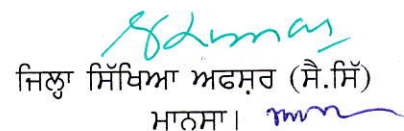 ਜਿਲ੍ਹਾ ਸਿੱਖਿਆ ਅਫਸ਼ਰ (ਸੈ.ਸਿੱ)
ਮਾਨਸਾ।